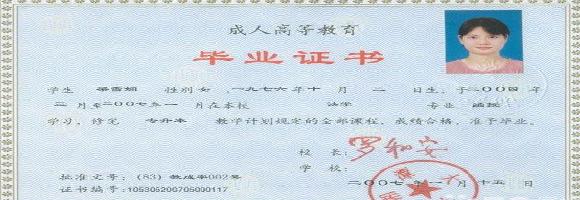 成人高等教育
毕业证书
学生 性别 女,一九七六年十月 二 日生,于二〇〇四年
二月至二〇〇七年一月在本校 法学 专业 函授
学习,修完 专升本 教学计划规定的全部课程,成绩合格,准予毕业。
校 长: 罗和安
学 校:
批准文号: (83) 教成字002号
证书编号: 105305200705000117
二〇〇七年 一 月 十五 日